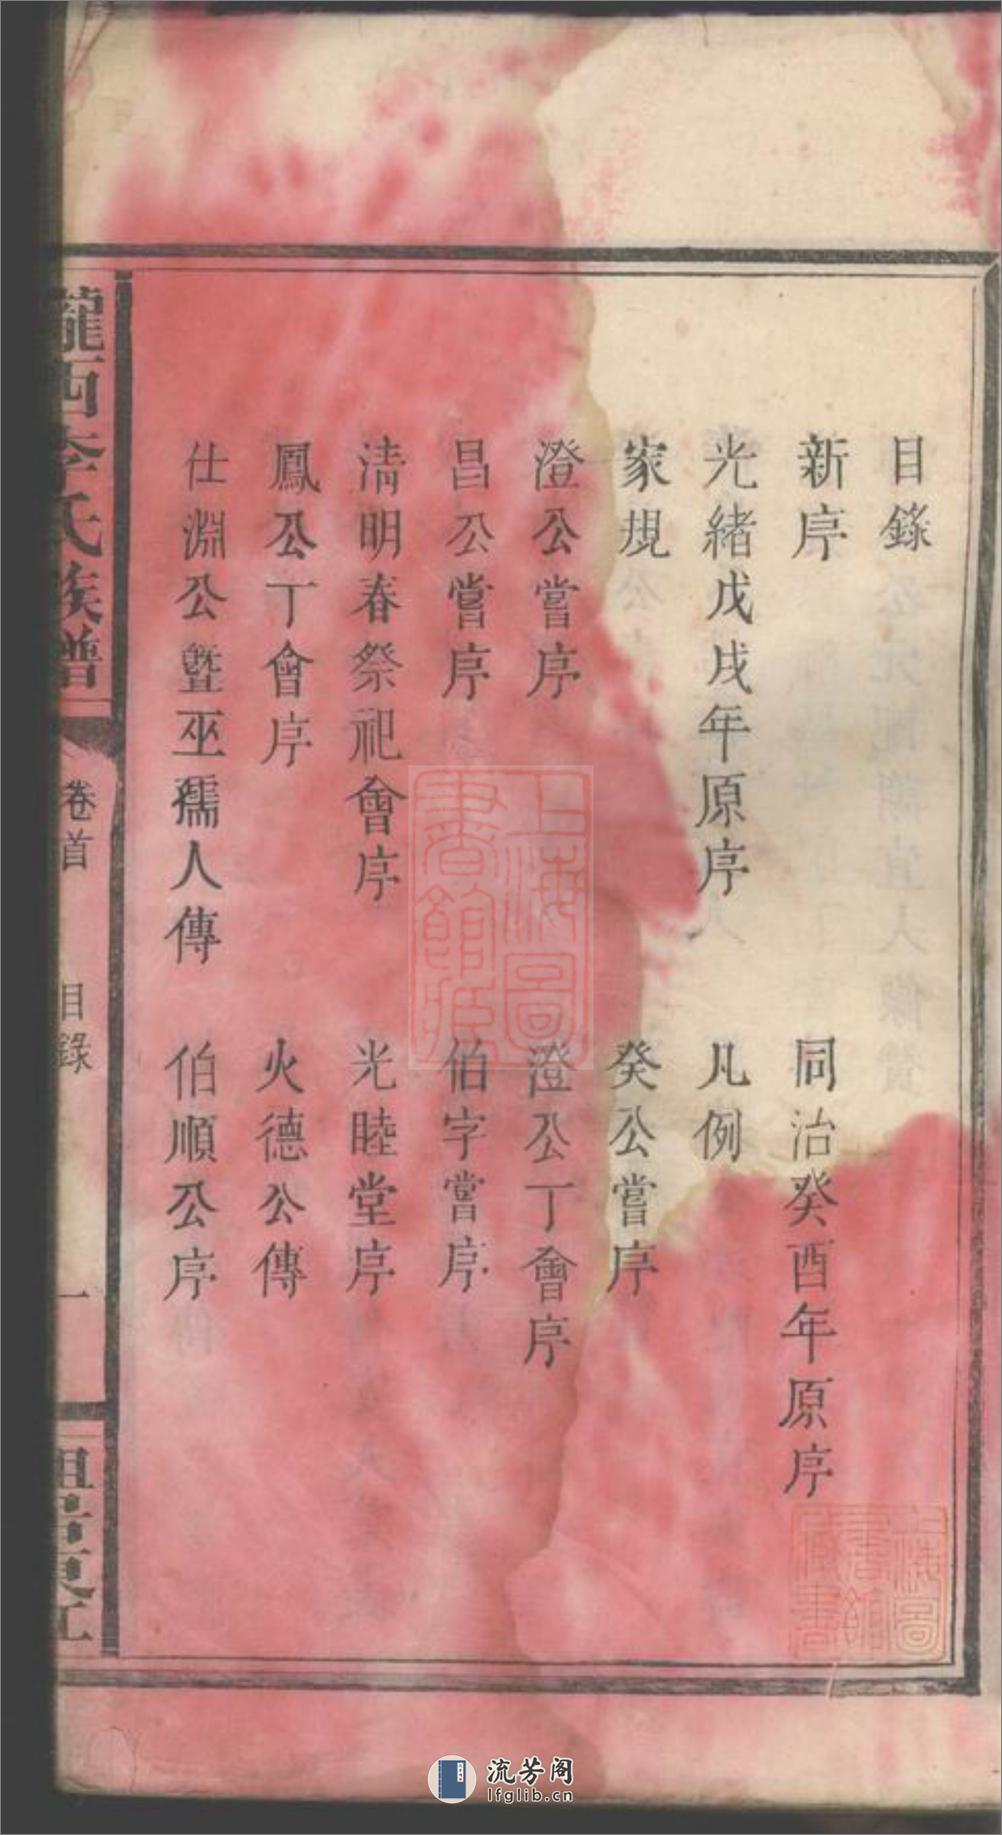 目錄
新序 同治癸酉年原序
光緒戊戌年原序 凡例
家規 癸公嘗序
澄公嘗序 澄公丁會序
昌公嘗序 伯字嘗序
清明春祭祀會序 光睦堂序
鳳公丁會序 火德公傳
仕淵公暨巫孺人傳 伯順公序
隴西李氏族譜 卷首 目錄 一
上海圖書館藏
上海圖書館藏書
流芳阁
lfglib.cn